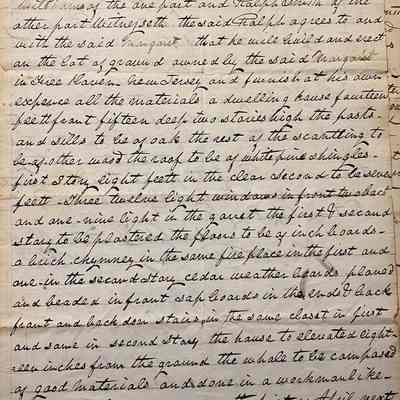 Williams of the one part and Ralph Smith of the
other part Witnesseth the said Ralph agrees to and
with the said Margaret that he will build and erect
on the lot of ground owned by the said Margaret
in New Jersey and furnish at his own
expence all the materials a dwelling house fourteen
feet front fifteen deep two stories high the posts
and sills to be of oak the rest of the scantling to
be of other wood the roof to be of white pine shingles
first Story eight feet in the clear second to be seven
feet - three twelve light windows in front two back
and one-nine light in the garret the first & second
story to be plastered the floors to be of inch boards
a brick chymney in the same fireplace in the first and
one in the second story cedar weather boards planed
and beaded in front sap boards in the ends & back
front and back door stairs in the same closet in first
and same in second story the house to elevated eight-
reen inches from the ground the whole to be composed
of good materials and done in a workmanlike-
the first April next